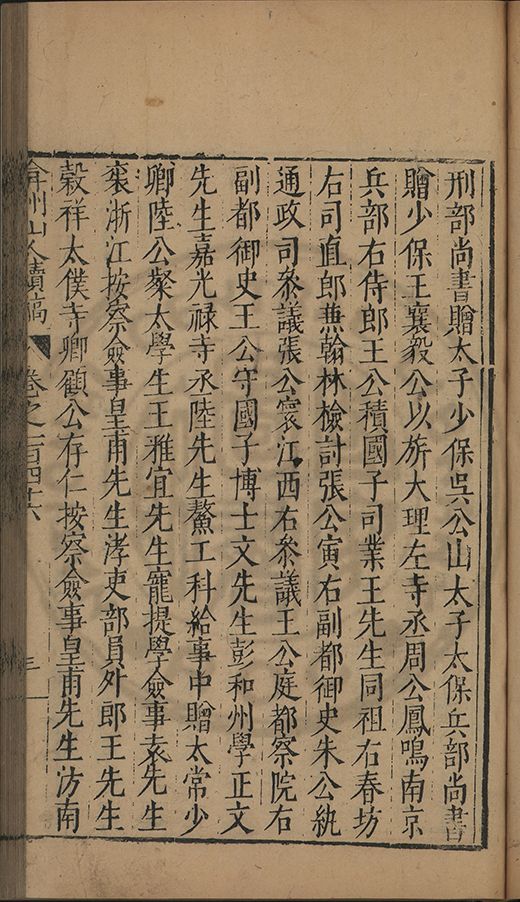 刑部尚書贈太子少保吳公山太子太保兵部尚書
贈少保王襄毅公以旂大理左寺丞周公鳳鳴南京
兵部右侍郎王公積國子司業王先生同祖右春坊
右司直郎蒹翰林檢討張公寅右副都御史朱公紈
通政司叅議張公寰江西右叅議王公庭都察院右
副都御史王公守國子博士文先生彭和州學正文
先生嘉光祿寺丞陸先生鰲工科給事中贈太常少
卿陸公粲太學生王雅宜先生寵提學僉事袁先生
袠浙江按察僉事皇甫先生涍吏部員外郎王先生
穀祥太僕寺卿顧公存仁按察僉事皇甫先生汸南
弇州山人續稿 卷之一百四十六 三